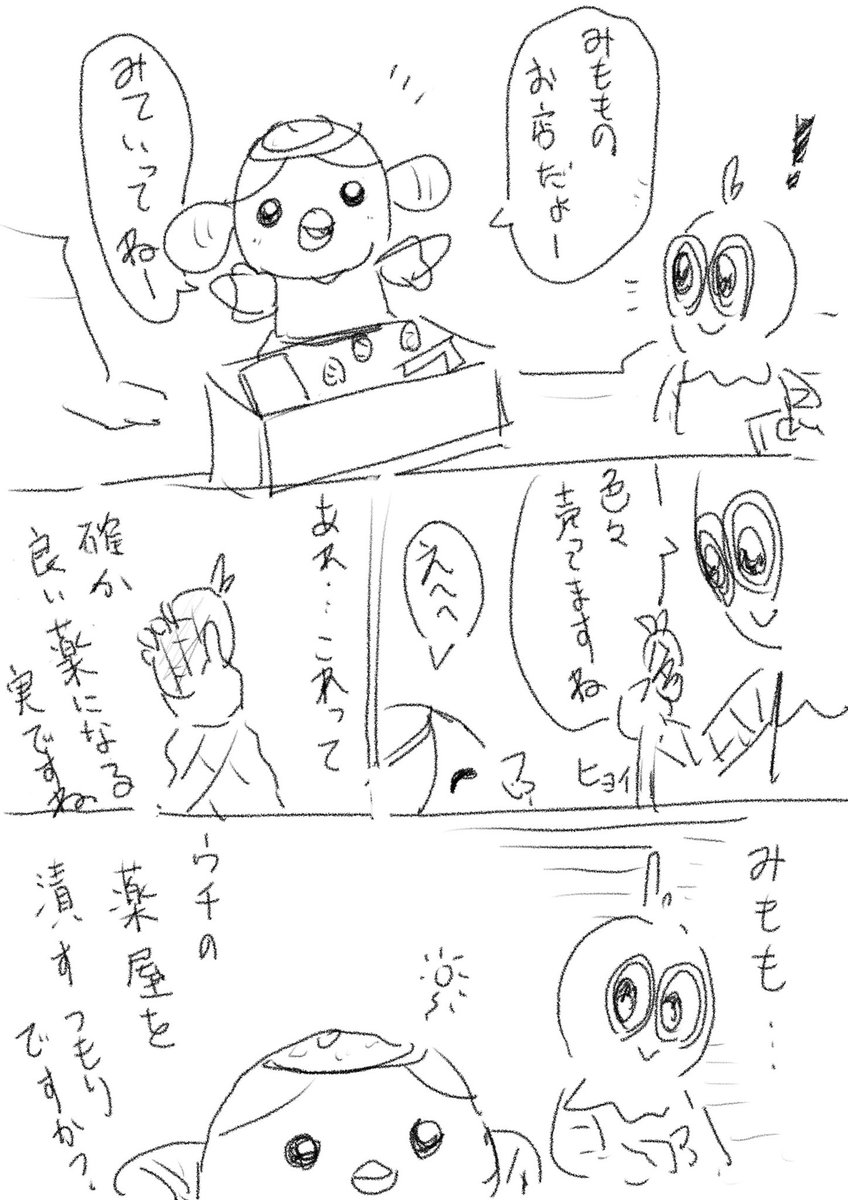 みももの
お店だよー
みていってねー
色々
売ってますね
ヒョイ
えへへ
あれ…これって
確か
良い薬になる
実ですね
みもも…
ウチの
薬屋を
潰す
つもり
ですか？